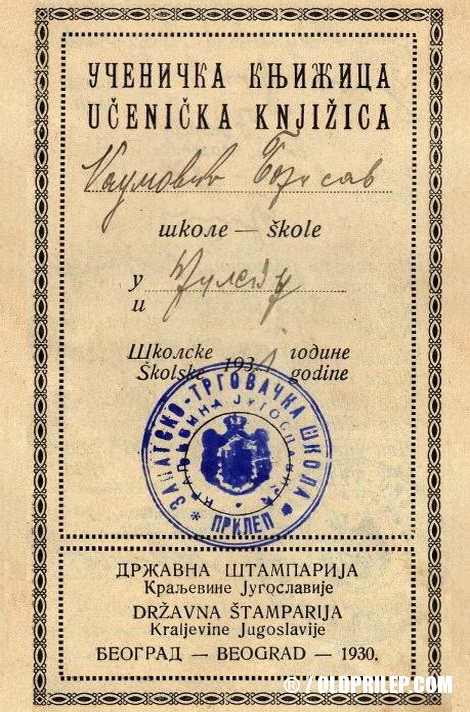 УЧЕНИЧКА КЊИЖИЦА
UČENIČKA KNJIŽICA
Наумовић Борисав
школе — škole
у Прилепу
и
Школске године
Školske 193 godine
ЗАНАТСКО-ТРГОВАЧКА ШКОЛА
КРАЉЕВИНА ЈУГОСЛАВИЈА
* ПРИЛЕП *
ДРЖАВНА ШТАМПАРИЈА
Краљевине Југославије
DRŽAVNA ŠTAMPARIJA
Kraljevine Jugoslavije
БЕОГРАД — BEOGRAD — 1930.
® / OLDPRILEP.COM